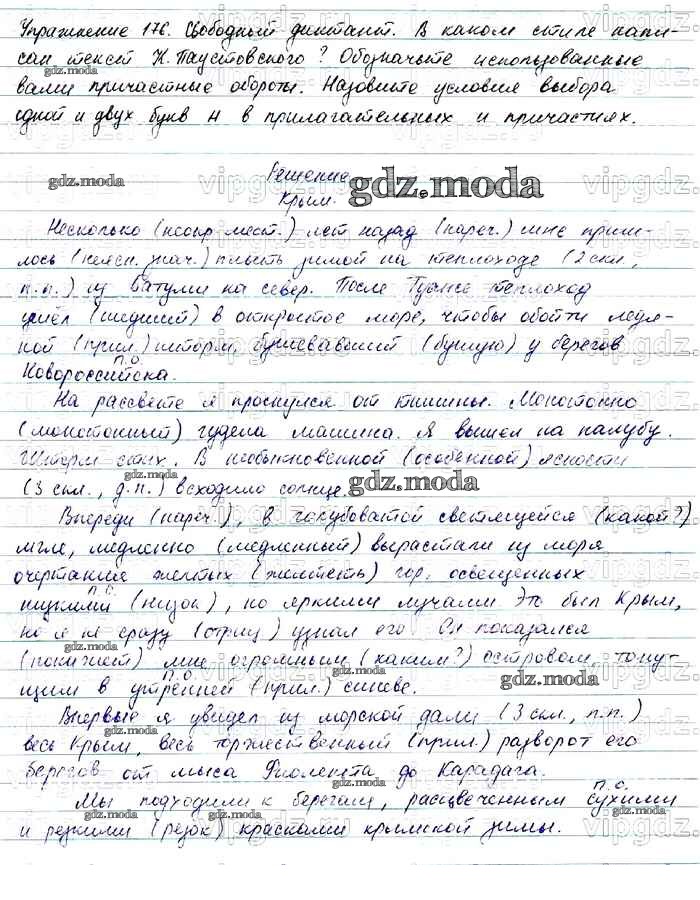 Упражнение 176. Свободный диктант. В каком стиле напи-
сан текст К. Паустовского? Обозначьте использованные
вами причастные обороты. Назовите условия выбора
одной и двух букв н в прилагательных и причастиях.
Решение
gdz.moda
gdz.moda
Крым.
Несколько (неопр. мест.) лет назад (нареч.) мне приш-
лось (неясн. знач.) плыть зимой на теплоходе (2 скл.,
п.п.) из Батуми на север. После Туапсе теплоход
ушёл (шедший) в открытое море, чтобы обойти ледя-
ной (прил.) шторм, бушевавший (бушую) у берегов
п.о.
Новороссийска.
На рассвете я проснулся от тишины. Монотонно
(монотонный) гудела машина. Я вышел на палубу.
Шторм стих. В необыкновенной (особенной) ясности
gdz.moda
(3 скл., д.п.) всходило солнце.
gdz.moda
gdz.moda
Впереди (нареч.), в голубоватой светящейся (какой?)
мгле, медленно (медленный) вырастали из моря
очертания желтых (желтеть) гор, освещенных
п.о.
низкими (низок), но яркими лучами. Это был Крым,
но я не сразу (отриц) узнал его. Он показался
(покажет) мне огромным (каким?) островом, тону-
п.о.
gdz.moda
gdz.moda
щим в утренней (прил.) синеве.
gdz.moda
Впервые я увидел из морской дали (3 скл., п.п.)
весь Крым, весь торжественный (прил.) разворот его
gdz.moda
берегов от мыса Фиолента до Карадага.
п.о.
Мы подходили к берегам, расцвеченным сухими
gdz.moda
gdz.moda
и резкими (резок) красками крымской зимы.
gdz.moda